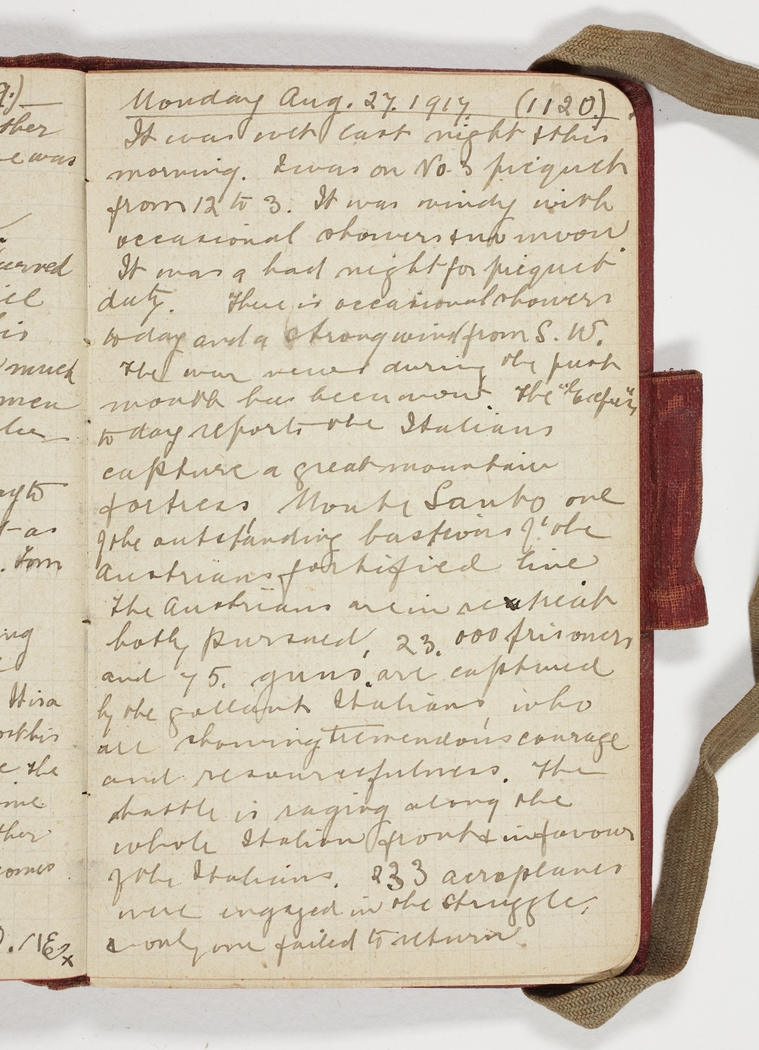 g.)
ther
e was
urved
iel
his
much
men
ay to
t as
. Tom
ing
It is a
this
e the
me
ther
comes
Monday Aug. 27. 1917 (1120.)
It was wet last night & this
morning. I was on No. 3 picquet
from 12 to 3. It was windy with
occasional showers & no moon.
It was a bad night for picquet
duty. There is occasional showers
today and a strong wind from S. W.
The war news during the past
month has been The
today reports the Italians
capture a great mountain
fortress, Monte Santo one
of the outstanding bastions of the
Austrians fortified line
The Austrians are in retreat
hotly pursued, 23.000 prisoners
and 75. guns are captured
by the gallant Italians who
are showing tremendous courage
and resourcefulness. The
battle is raging along the
whole Italian front & in favour
of the Italians. 233 aeroplanes
were engaged in the struggle,
& only one failed to return.